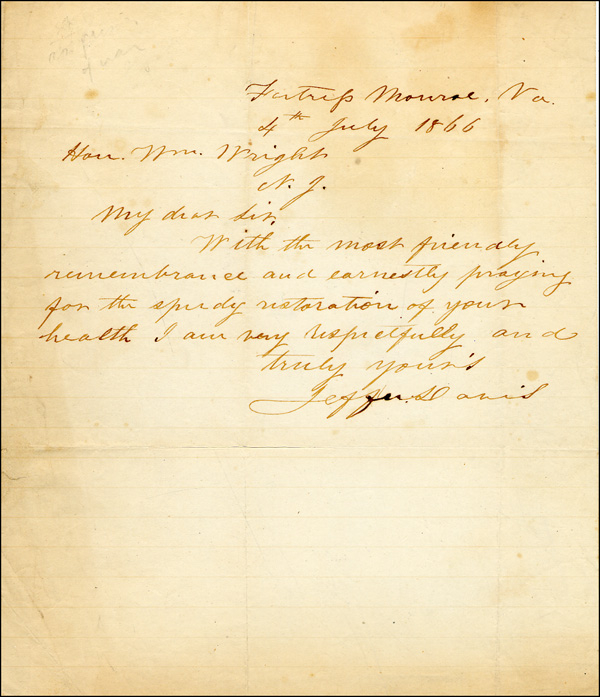 Fortress Monroe, Va.
4th July 1866
Hon. Wm. Wright
N. J.
My dear Sir,
With the most friendly
remembrance and earnestly praying
for the speedy restoration of your
health I am very respectfully and
truly your's
Jeffer. Davis